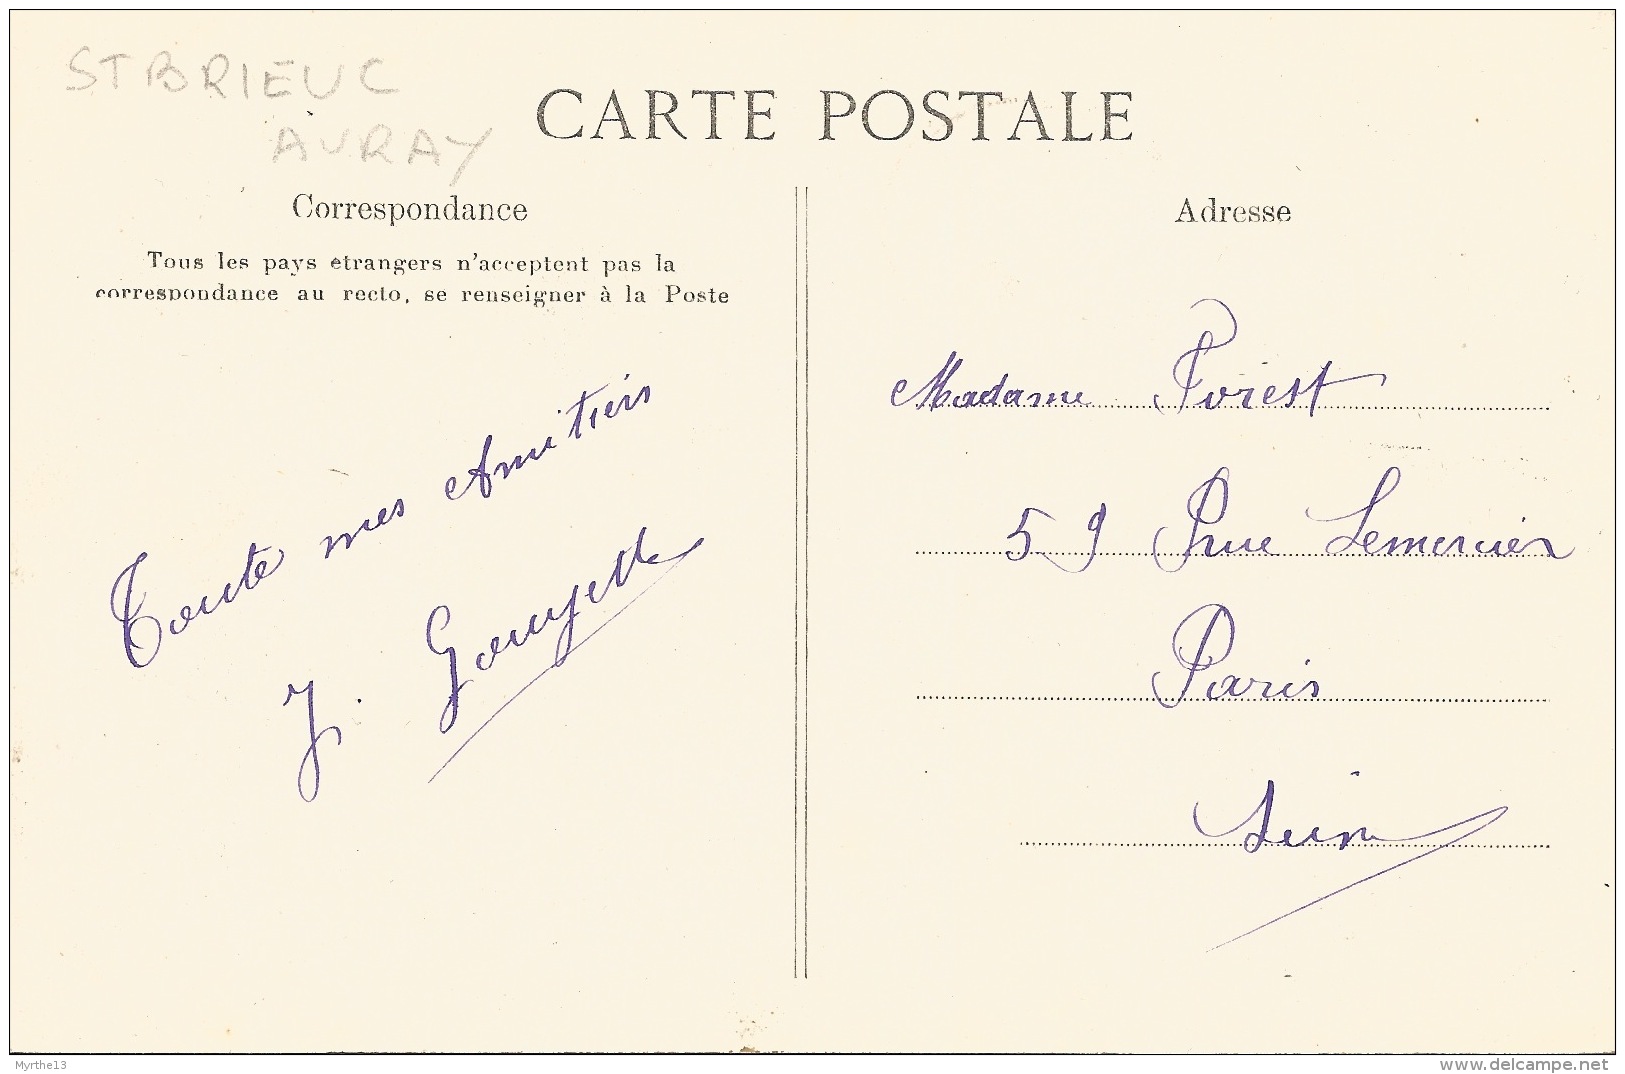 ST BRIEUC
AURAY
CARTE POSTALE
Correspondance
Tous les pays étrangers n'acceptent pas la
correspondance au recto, se renseigner à la Poste
Toute mes Amitiers
J.
Adresse
Madame Forest
59 Rue Lemercier
Paris
Seine
Myrthe13
www.delcampe.net